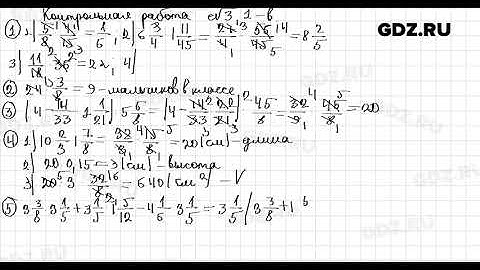 Контрольная работа №3, 1-в GDZ.RU
① 1) 5/8 · 4/15 = 1/6, 2) 6 3/4 · 1 11/45 = 27/4 · 56/45 = 8 2/5
3) 11/18 · 36 = 22, 4)
② 24 · 3/8 = 9 – мальчиков в классе
③ (4 – 14/33 · 1 1/21) · 5 5/8 = (4 – 14/33 · 22/21) · 45/8 = 32/9 · 45/8 = 20
④ 1) 10 2/3 · 1 7/8 = 32/3 · 15/8 = 20 (см) – длина
2) 20 · 0,15 = 3 (см) – высота
3) 20 · 3 · 32/3 = 640 (см³) – V
⑤ 3 3/8 · 3 1/5 + 3 1/5 · 1 5/12 – 4 1/6 · 3 1/5 = 3 1/5 (3 3/8 + 1 5